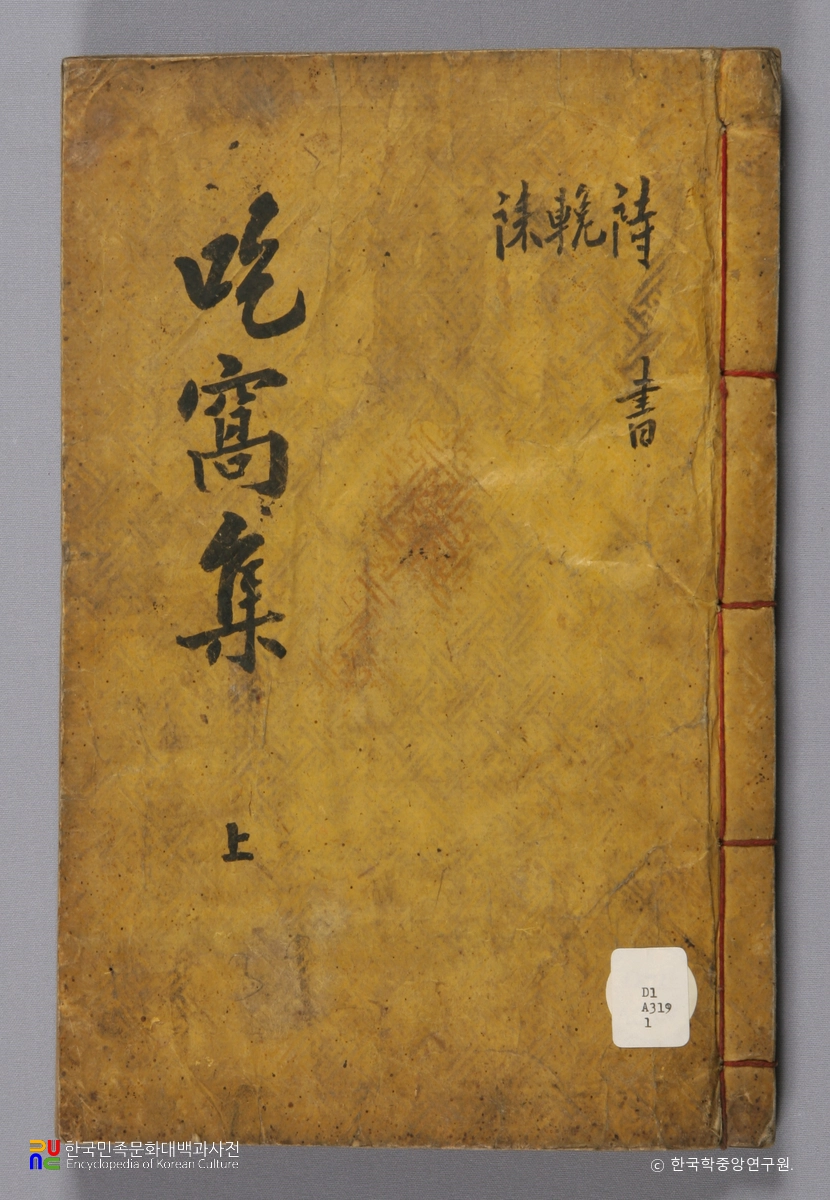 詩 輓 誄
書
吃窩集 上
D1
A319
1
한국민족문화대백과사전
Encyclopedia of Korean Culture
© 한국학중앙연구원.